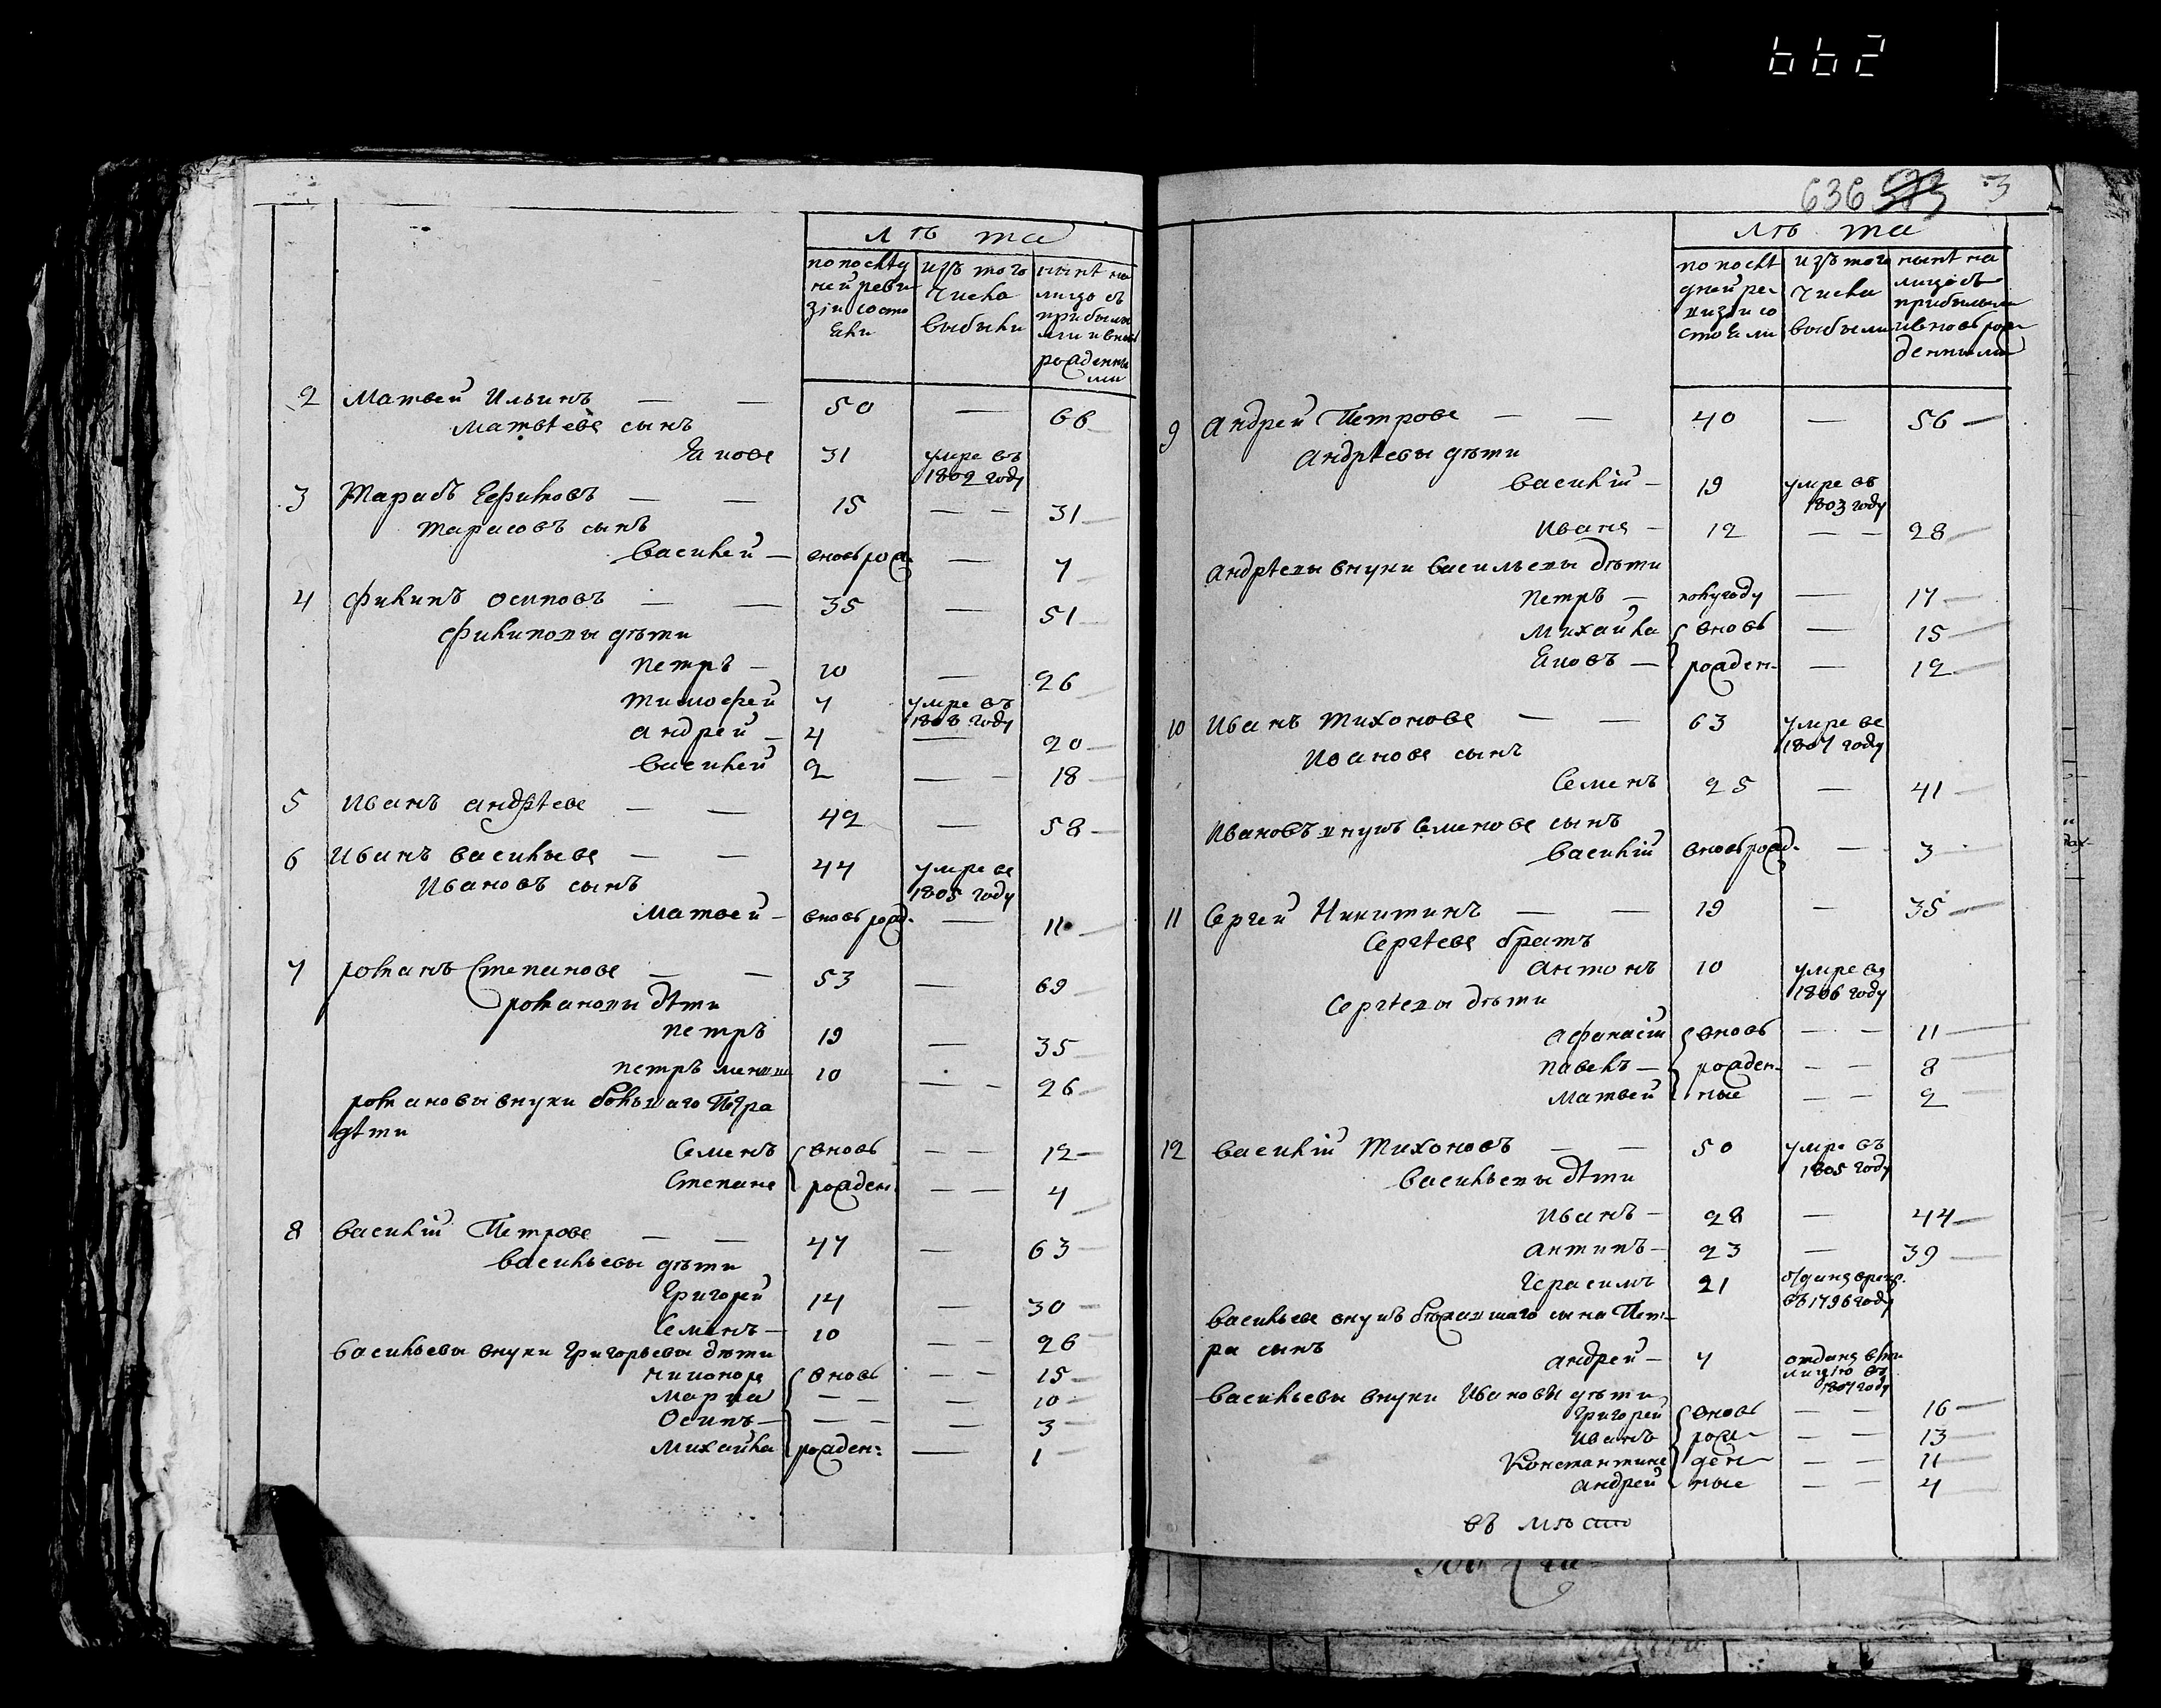 662
636 3
лѣта
по послѣд
ней реви
зіи состо
яли
изъ того
числа
выбыли
нынѣ на
лицо съ
прибылы
ми и вновь
рожденны
ми
2 Матвей Ильинъ — — 50 — 66
Матвѣевъ сынъ
Яковъ 31 умре въ
1802 году
3 Тарасъ Ефимовъ — — 15 — — 31
Тарасовъ сынъ
Василей — вновь рож. — 7
4 Филипъ Осиповъ — — 35 — 51
Филиповы дѣти
Петръ — 10 — 26
Тимофей 7 умре въ
1808 году
Андрей — 4 — 20
Василей 2 — — 18
5 Иванъ Андрѣевъ — — 42 — 58
6 Иванъ Васильевъ — — 44 умре въ
1805 году
Ивановъ сынъ
Матвей — вновь рожд. — 11
7 Романъ Степановъ — — 53 — 69
Романовы дѣти
Петръ 19 — 35
Петръ меншой 10 — — 26
Романовы внуки большаго Петра
дѣти
Семенъ вновь — — 12
Степанъ рожден. — — 4
8 Василій Петровъ — — 47 — 63
Васильевы дѣти
Григорей 14 — 30
Семенъ — 10 — — 26
Васильевы внуки Григорьевы дѣти
Никоноръ вновь — — 15
— — — 10
Осипъ — — — — 3
Михайла рожден: — 1
лѣта
по послѣ
дней ре
визіи со
стояли
изъ того
числа
выбыли
нынѣ на
лицо съ
прибылыми
и вновь рож
денными
9 Андрей Петровъ — — 40 — 56
Андрѣевы дѣти
Василій — 19 умре въ
1803 году
Иванъ — 12 — — 28
Андрѣевы внуки Васильевы дѣти
Петръ — полугоду — 17
Михайла вновь — 15
Яковъ — рожден. — 12
10 Иванъ Тихоновъ — — 63 умре въ
1807 году
Ивановъ сынъ
Семенъ 25 — 41
Ивановъ внукъ Семеновъ сынъ
Василій вновь рожд. — 3
11 Сергей Никитинъ — — 19 — 35
Сергѣевъ братъ
Антонъ 10 умре въ
1806 году
Сергѣевы дѣти
Афанасій вновь — — 11
Павелъ — рожден — — 8
Матвей ные — — 2
12 Василій Тихоновъ — — 50 умре въ
1805 году
Васильевы дѣти
Иванъ — 28 — 44
Антипъ — 23 — 39
Герасимъ 21 отданъ в рекр.
въ 1796 году
Васильевъ внукъ сына Пет-
ра сынъ
Андрей — 7 отданъ в ми
лицію въ
1807 году
Васильевы внуки Ивановы дѣти
Григорей вновь — — 16
Иванъ рож — — 13
Константинъ ден — — 11
Андрей ные — — 4
въ мѣсто